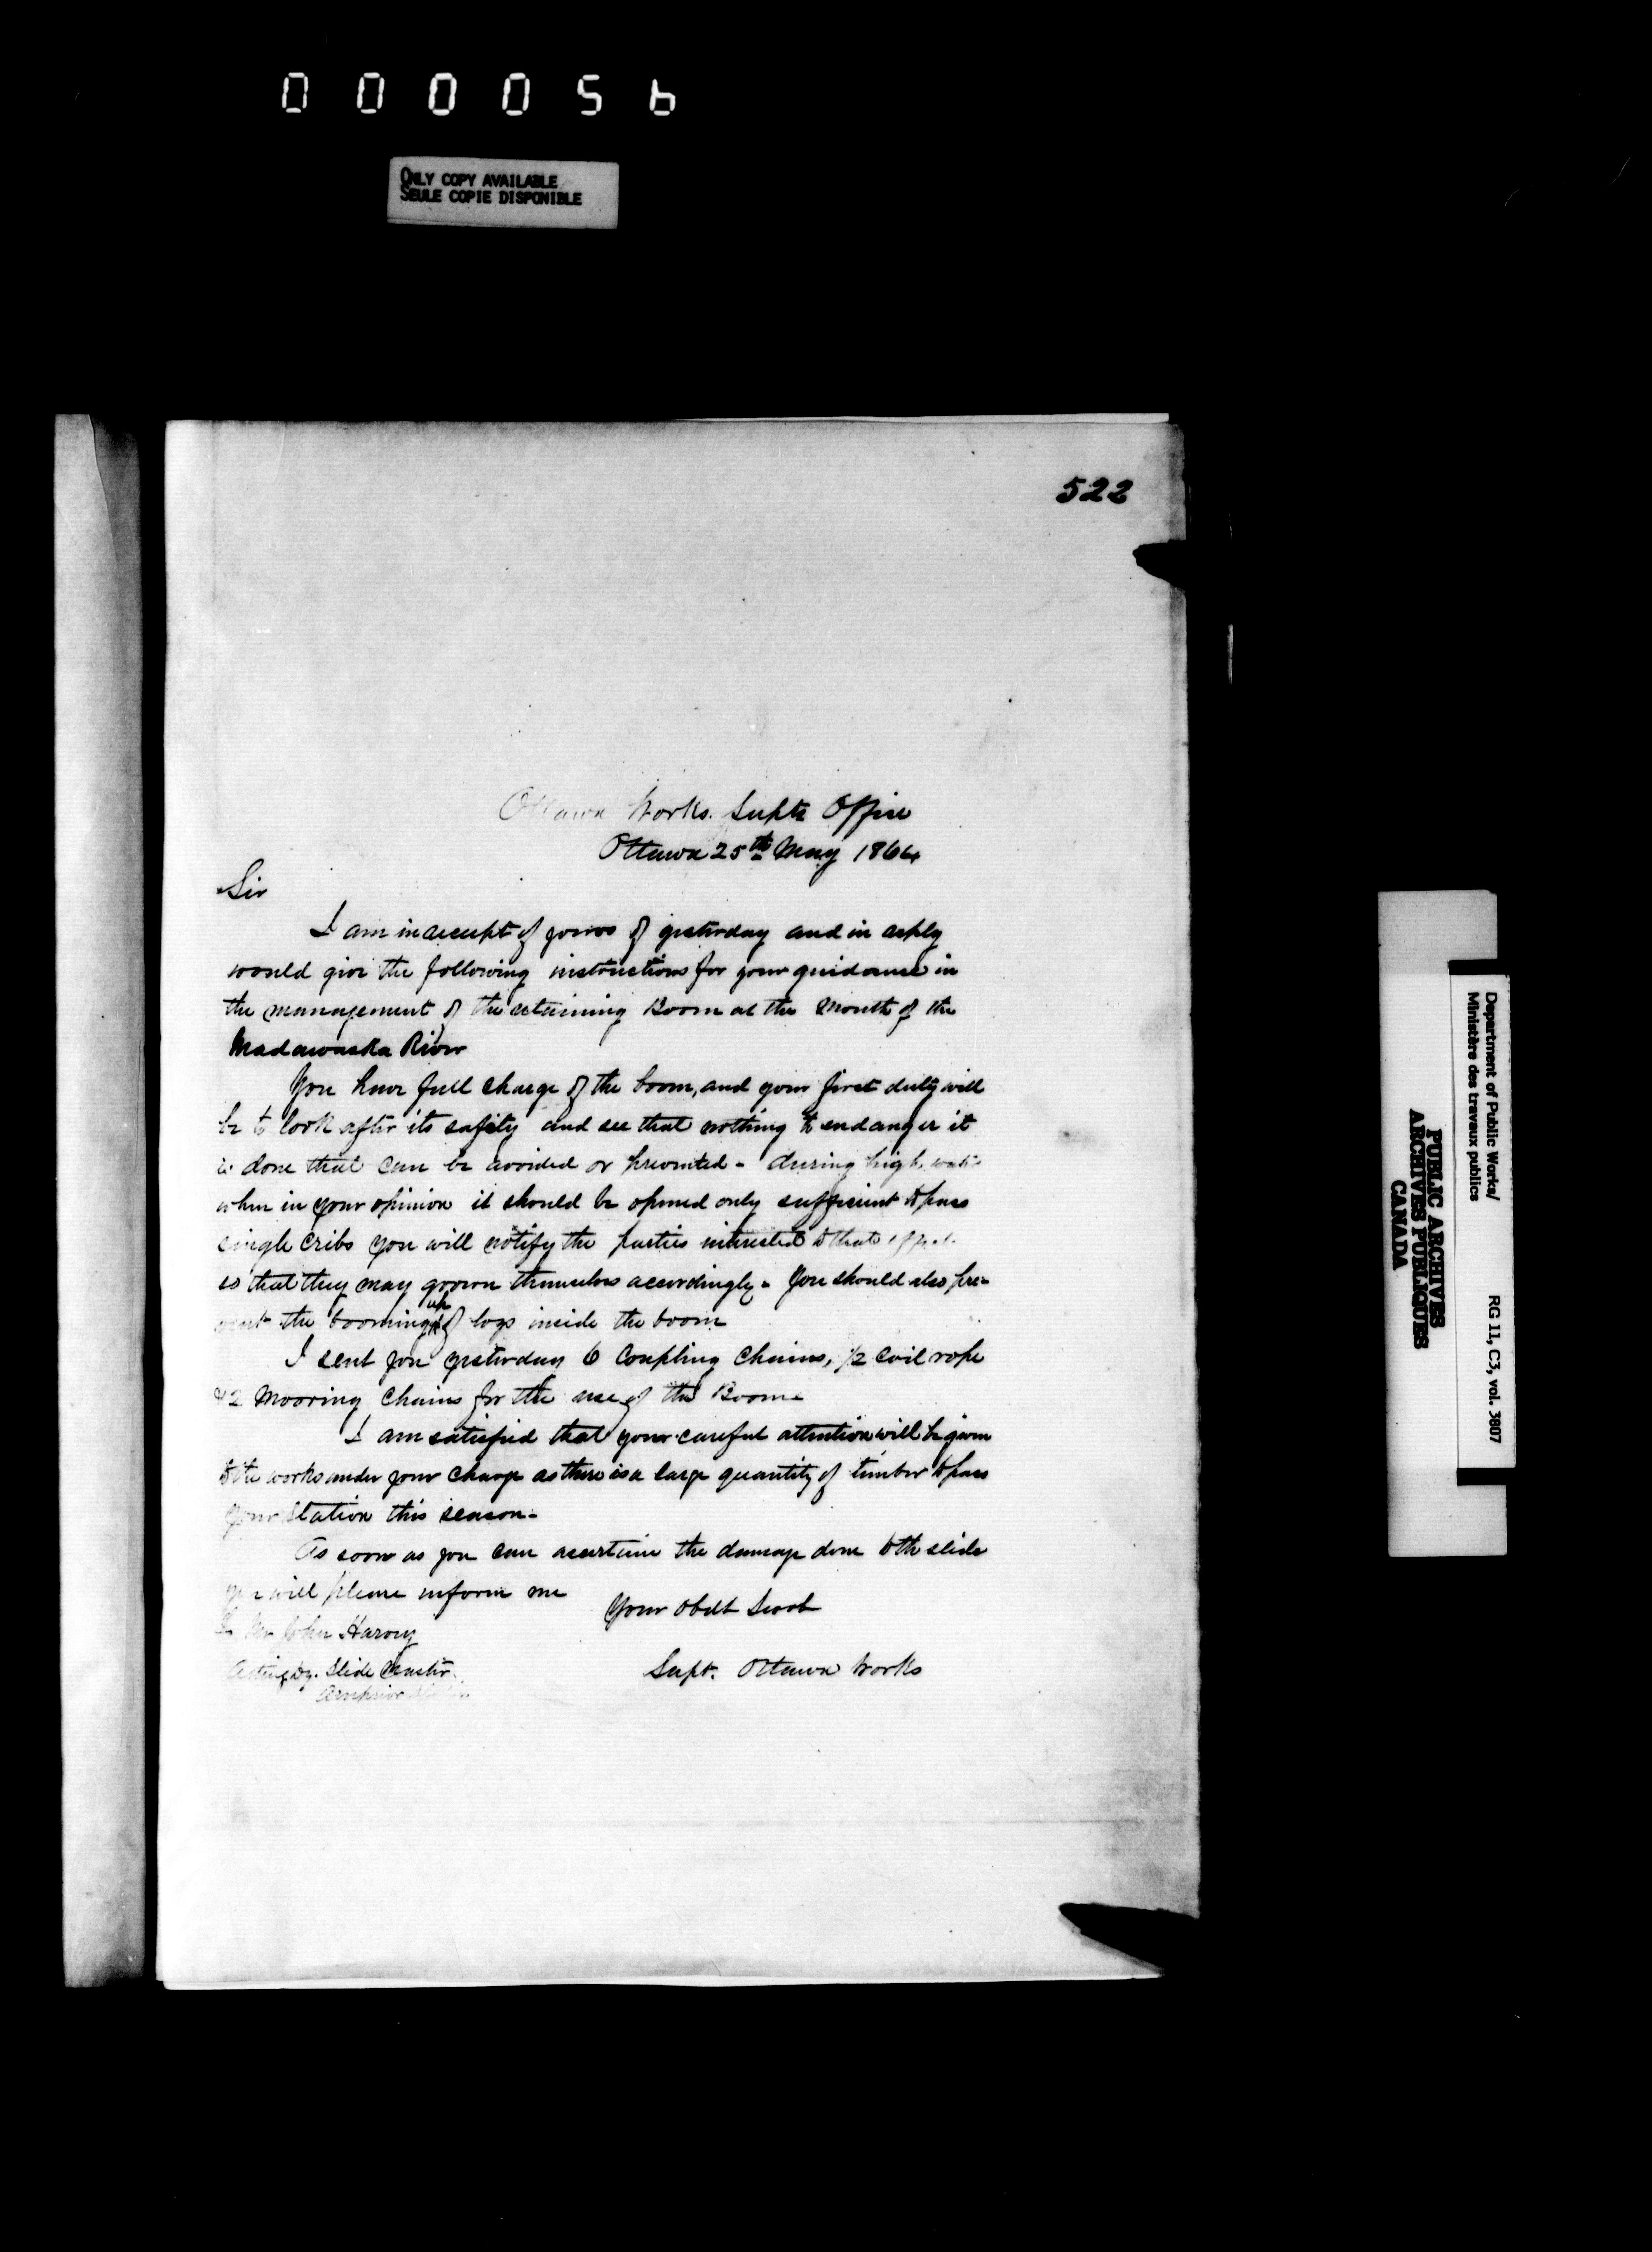 000056
ONLY COPY AVAILABLE
SEULE COPIE DISPONIBLE
522
Ottawa Works. Supts Office
Ottawa 25th May 1864
Sir
I am in receipt of yours of yesterday and in reply
would give the following instructions for your guidance in
the management of the retaining Boom at the Mouth of the
Madawaska River
You have full charge of the boom, and your first duty will
be to look after its safety and see that nothing to endanger it
is done that can be avoided or prevented - during high water
when in your opinion it should be opened only sufficient to pass
single Cribs you will notify the parties interested to that effect
so that they may govern themselves accordingly - You should also pre-
vent the booming up of logs inside the boom
I sent you yesterday 6 Coupling Chains, 1/2 Coil rope
& 2 Mooring Chains for the use of the Boom -
I am satisfied that your careful attention will be given
to the works under your charge as there is a large quantity of timber to pass
your Station this season -
As soon as you can ascertain the damage done to the slide
you will please inform me
Your Obdt Servt
To Mr John Harvey
Acting Dy. Slide Master
Supt. Ottawa Works
Arnprior
Department of Public Works/
Ministère des travaux publics
RG 11, C3, vol. 3807
PUBLIC ARCHIVES
ARCHIVES PUBLIQUES
CANADA